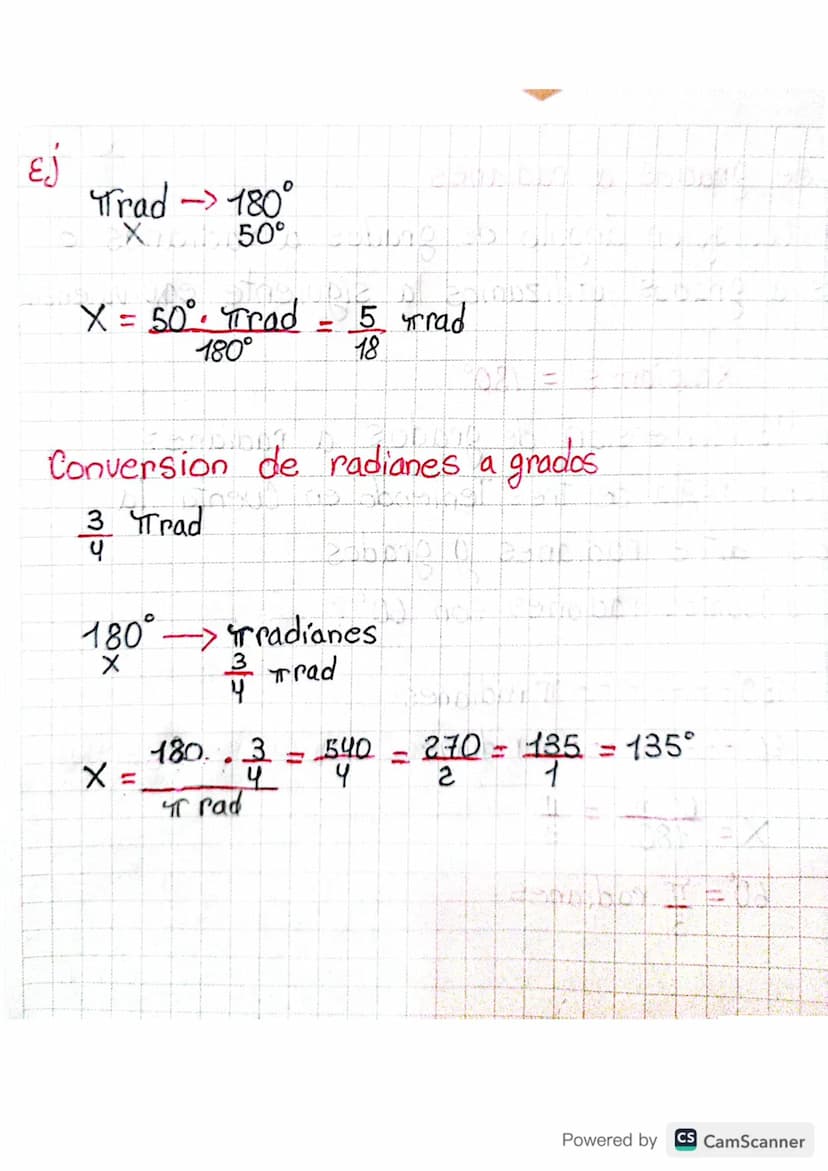 Ej
πrad → 180°
X 50°
X = 50° · πrad / 180° = 5/18 πrad
Conversion de radianes a grados
3/4 πrad
180° → πradianes
X 3/4 πrad
X = 180. · 3/4 / π rad = 540/4 = 270/2 = 135/1 = 135°
Powered by CS CamScanner